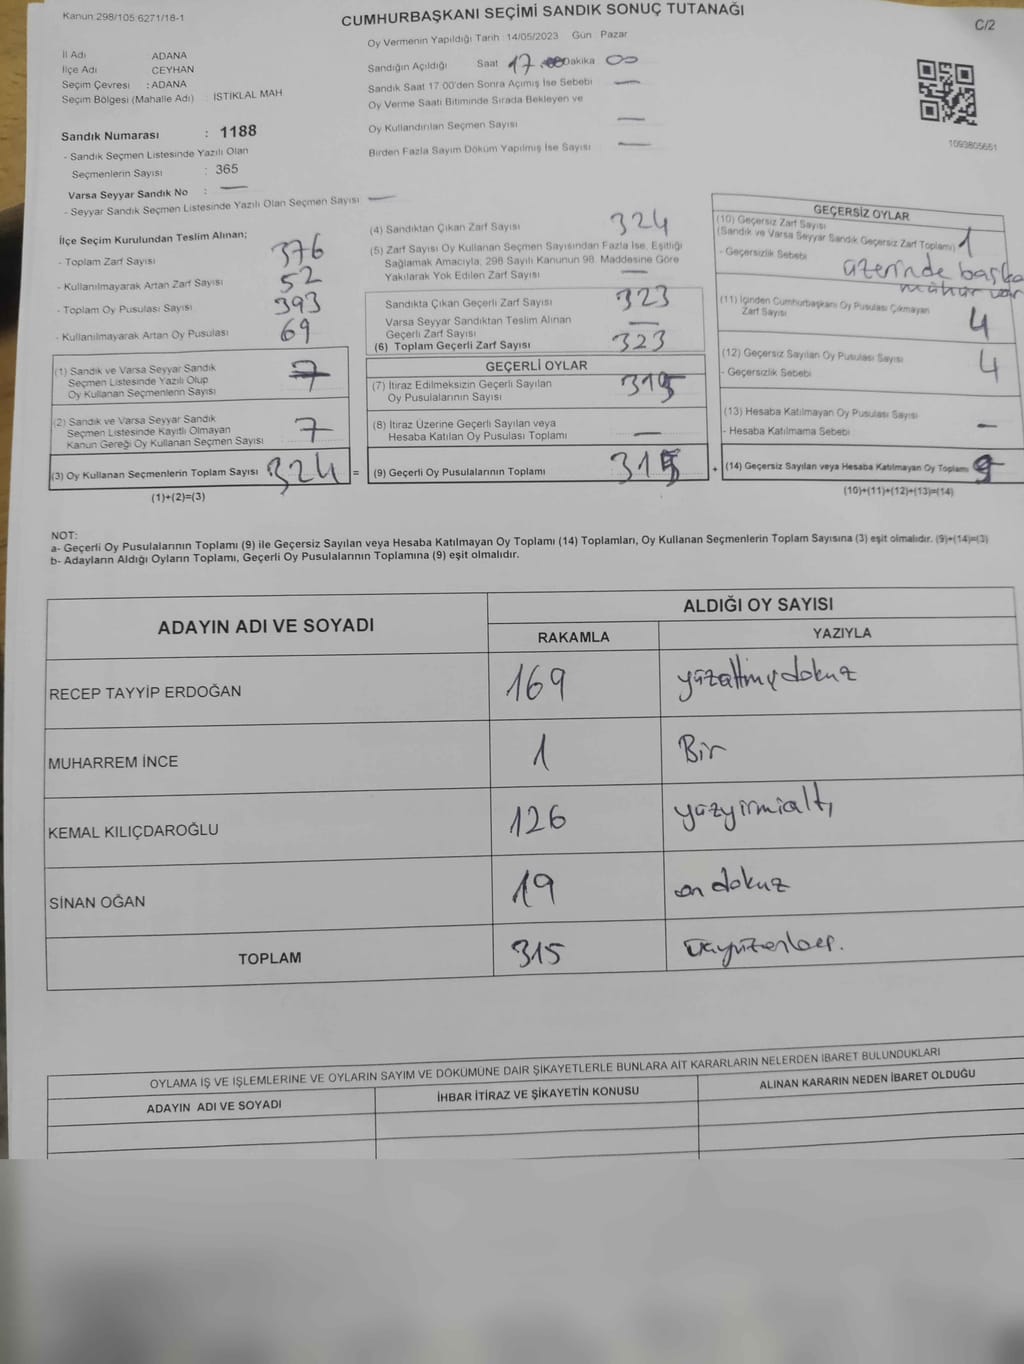 Kanun:298/105 6271/18-1
CUMHURBAŞKANI SEÇİMİ SANDIK SONUÇ TUTANAĞI
C/2
İl Adı : ADANA
İlçe Adı : CEYHAN
Seçim Çevresi : ADANA
Seçim Bölgesi (Mahalle Adı) : İSTİKLAL MAH
Sandık Numarası : 1188
- Sandık Seçmen Listesinde Yazılı Olan
Seçmenlerin Sayısı : 365
Varsa Seyyar Sandık No : —
- Seyyar Sandık Seçmen Listesinde Yazılı Olan Seçmen Sayısı —
Oy Vermenin Yapıldığı Tarih : 14/05/2023 Gün : Pazar
Sandığın Açıldığı Saat 17 Dakika 00
Sandık Saat 17.00'den Sonra Açımış İse Sebebi —
Oy Verme Saati Bitiminde Sırada Bekleyen ve
Oy Kullandırılan Seçmen Sayısı —
Birden Fazla Sayım Döküm Yapılmış İse Sayısı —
1093805651
İlçe Seçim Kurulundan Teslim Alınan;
- Toplam Zarf Sayısı 376
- Kullanılmayarak Artan Zarf Sayısı 52
- Toplam Oy Pusulası Sayısı 393
- Kullanılmayarak Artan Oy Pusulası 69
(1) Sandık ve Varsa Seyyar Sandık
Seçmen Listesinde Yazılı Olup
Oy Kullanan Seçmenlerin Sayısı
(2) Sandık ve Varsa Seyyar Sandık
Seçmen Listesinde Kayıtlı Olmayan
Kanun Gereği Oy Kullanan Seçmen Sayısı 7
(3) Oy Kullanan Seçmenlerin Toplam Sayısı 324 =
(1)+(2)=(3)
(4) Sandıktan Çıkan Zarf Sayısı 324
(5) Zarf Sayısı Oy Kullanan Seçmen Sayısından Fazla İse, Eşitliği
Sağlamak Amacıyla, 298 Sayılı Kanunun 98. Maddesine Göre
Yakılarak Yok Edilen Zarf Sayısı —
Sandıkta Çıkan Geçerli Zarf Sayısı 323
Varsa Seyyar Sandıktan Teslim Alınan
Geçerli Zarf Sayısı —
(6) Toplam Geçerli Zarf Sayısı 323
GEÇERLİ OYLAR
(7) İtiraz Edilmeksizin Geçerli Sayılan
Oy Pusulalarının Sayısı 315
(8) İtiraz Üzerine Geçerli Sayılan veya
Hesaba Katılan Oy Pusulası Toplamı —
(9) Geçerli Oy Pusulalarının Toplamı 315 +
GEÇERSİZ OYLAR
(10) Geçersiz Zarf Sayısı
(Sandık ve Varsa Seyyar Sandık Geçersiz Zarf Toplamı) 1
- Geçersizlik Sebebi üzerinde başka
mühür var
(11) İçinden Cumhurbaşkanı Oy Pusulası Çıkmayan
Zarf Sayısı 4
(12) Geçersiz Sayılan Oy Pusulası Sayısı 4
- Geçersizlik Sebebi
(13) Hesaba Katılmayan Oy Pusulası Sayısı
- Hesaba Katılmama Sebebi —
(14) Geçersiz Sayılan veya Hesaba Katılmayan Oy Toplamı 9
(10)+(11)+(12)+(13)=(14)
NOT:
a- Geçerli Oy Pusulalarının Toplamı (9) ile Geçersiz Sayılan veya Hesaba Katılmayan Oy Toplamı (14) Toplamları, Oy Kullanan Seçmenlerin Toplam Sayısına (3) eşit olmalıdır. (9)+(14)=(3)
b- Adayların Aldığı Oyların Toplamı, Geçerli Oy Pusulalarının Toplamına (9) eşit olmalıdır.
ADAYIN ADI VE SOYADI
ALDIĞI OY SAYISI
RAKAMLA YAZIYLA
RECEP TAYYİP ERDOĞAN 169 yüzaltmışdokuz
MUHARREM İNCE 1 Bir
KEMAL KILIÇDAROĞLU 126 yüzyirmialtı
SİNAN OĞAN 19 on dokuz
TOPLAM 315 üçyüzonbeş.
OYLAMA İŞ VE İŞLEMLERİNE VE OYLARIN SAYIM VE DÖKÜMÜNE DAİR ŞİKAYETLERLE BUNLARA AİT KARARLARIN NELERDEN İBARET BULUNDUKLARI
ADAYIN ADI VE SOYADI İHBAR İTİRAZ VE ŞİKAYETİN KONUSU ALINAN KARARIN NEDEN İBARET OLDUĞU